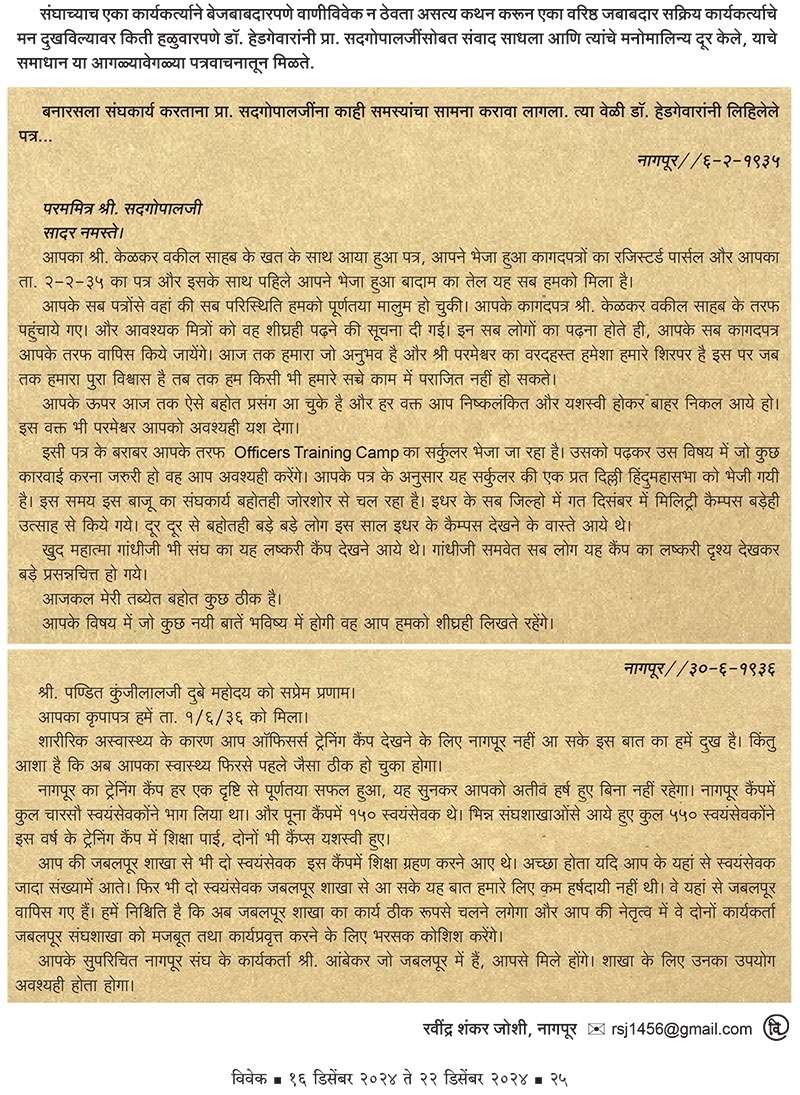 संघाच्याच एका कार्यकर्त्याने बेजबाबदारपणे वाणीविवेक न ठेवता असत्य कथन करून एका वरिष्ठ जबाबदार सक्रिय कार्यकर्त्याचे
मन दुखविल्यावर किती हळुवारपणे डॉ. हेडगेवारांनी प्रा. सदगोपालजींसोबत संवाद साधला आणि त्यांचे मनोमालिन्य दूर केले, याचे
समाधान या आगळ्यावेगळ्या पत्रवाचनातून मिळते.
बनारसला संघकार्य करताना प्रा. सदगोपालजींना काही समस्यांचा सामना करावा लागला. त्या वेळी डॉ. हेडगेवारांनी लिहिलेले
पत्र...
नागपूर//६-२-१९३५
परममित्र श्री. सदगोपालजी
सादर नमस्ते।
आपका श्री. केळकर वकील साहब के खत के साथ आया हुआ पत्र, आपने भेजा हुआ कागदपत्रों का रजिस्टर्ड पार्सल और आपका
ता. २-२-३५ का पत्र और इसके साथ पहिले आपने भेजा हुआ बादाम का तेल यह सब हमको मिला है।
आपके सब पत्रोंसे वहां की सब परिस्थिति हमको पूर्णतया मालुम हो चुकी। आपके कागदपत्र श्री. केळकर वकील साहब के तरफ
पहुंचाये गए। और आवश्यक मित्रों को वह शीघ्रही पढ़ने की सूचना दी गई। इन सब लोगों का पढ़ना होते ही, आपके सब कागदपत्र
आपके तरफ वापिस किये जायेंगे। आज तक हमारा जो अनुभव है और श्री परमेश्वर का वरदहस्त हमेशा हमारे शिरपर है इस पर जब
तक हमारा पुरा विश्वास है तब तक हम किसी भी हमारे सच्चे काम में पराजित नहीं हो सकते।
आपके ऊपर आज तक ऐसे बहोत प्रसंग आ चुके है और हर वक्त आप निष्कलंकित और यशस्वी होकर बाहर निकल आये हो।
इस वक्त भी परमेश्वर आपको अवश्यही यश देगा।
इसी पत्र के बराबर आपके तरफ Officers Training Camp का सर्कुलर भेजा जा रहा है। उसको पढ़कर उस विषय में जो कुछ
कारवाई करना जरुरी हो वह आप अवश्यही करेंगे। आपके पत्र के अनुसार यह सर्कुलर की एक प्रत दिल्ली हिंदुमहासभा को भेजी गयी
है। इस समय इस बाजू का संघकार्य बहोतही जोरशोर से चल रहा है। इधर के सब जिल्हो में गत दिसंबर में मिलिट्री कैम्पस बड़ेही
उत्साह से किये गये। दूर दूर से बहोतही बड़े बड़े लोग इस साल इधर के कैम्पस देखने के वास्ते आये थे।
खुद महात्मा गांधीजी भी संघ का यह लष्करी कैंप देखने आये थे। गांधीजी समवेत सब लोग यह कैंप का लष्करी दृश्य देखकर
बड़े प्रसन्नचित्त हो गये।
आजकल मेरी तब्येत बहोत कुछ ठीक है।
आपके विषय में जो कुछ नयी बातें भविष्य में होगी वह आप हमको शीघ्रही लिखते रहेंगे।
नागपूर//३०-६-१९३६
श्री. पण्डित कुंजीलालजी दुबे महोदय को सप्रेम प्रणाम।
आपका कृपापत्र हमें ता. १/६/३६ को मिला।
शारीरिक अस्वास्थ्य के कारण आप ऑफिसर्स ट्रेनिंग कैंप देखने के लिए नागपूर नहीं आ सके इस बात का हमें दुख है। किंतु
आशा है कि अब आपका स्वास्थ्य फिरसे पहले जैसा ठीक हो चुका होगा।
नागपूर का ट्रेनिंग कैंप हर एक दृष्टि से पूर्णतया सफल हुआ, यह सुनकर आपको अतीव हर्ष हुए बिना नहीं रहेगा। नागपूर कैंपमें
कुल चारसौ स्वयंसेवकोंने भाग लिया था। और पूना कैंपमें १५० स्वयंसेवक थे। भिन्न संघशाखाओंसे आये हुए कुल ५५० स्वयंसेवकोंने
इस वर्ष के ट्रेनिंग कैंप में शिक्षा पाई, दोनों भी कैंप्स यशस्वी हुए।
आप की जबलपूर शाखा से भी दो स्वयंसेवक इस कैंपमें शिक्षा ग्रहण करने आए थे। अच्छा होता यदि आप के यहां से स्वयंसेवक
जादा संख्यामें आते। फिर भी दो स्वयंसेवक जबलपूर शाखा से आ सके यह बात हमारे लिए कम हर्षदायी नहीं थी। वे यहां से जबलपूर
वापिस गए हैं। हमें निश्चिति है कि अब जबलपूर शाखा का कार्य ठीक रूपसे चलने लगेगा और आप की नेतृत्व में वे दोनों कार्यकर्ता
जबलपूर संघशाखा को मजबूत तथा कार्यप्रवृत्त करने के लिए भरसक कोशिश करेंगे।
आपके सुपरिचित नागपूर संघ के कार्यकर्ता श्री. आंबेकर जो जबलपूर में हैं, आपसे मिले होंगे। शाखा के लिए उनका उपयोग
अवश्यही होता होगा।
रवींद्र शंकर जोशी, नागपूर ✉ rsj1456@gmail.com वि
विवेक ■ १६ डिसेंबर २०२४ ते २२ डिसेंबर २०२४ ■ २५